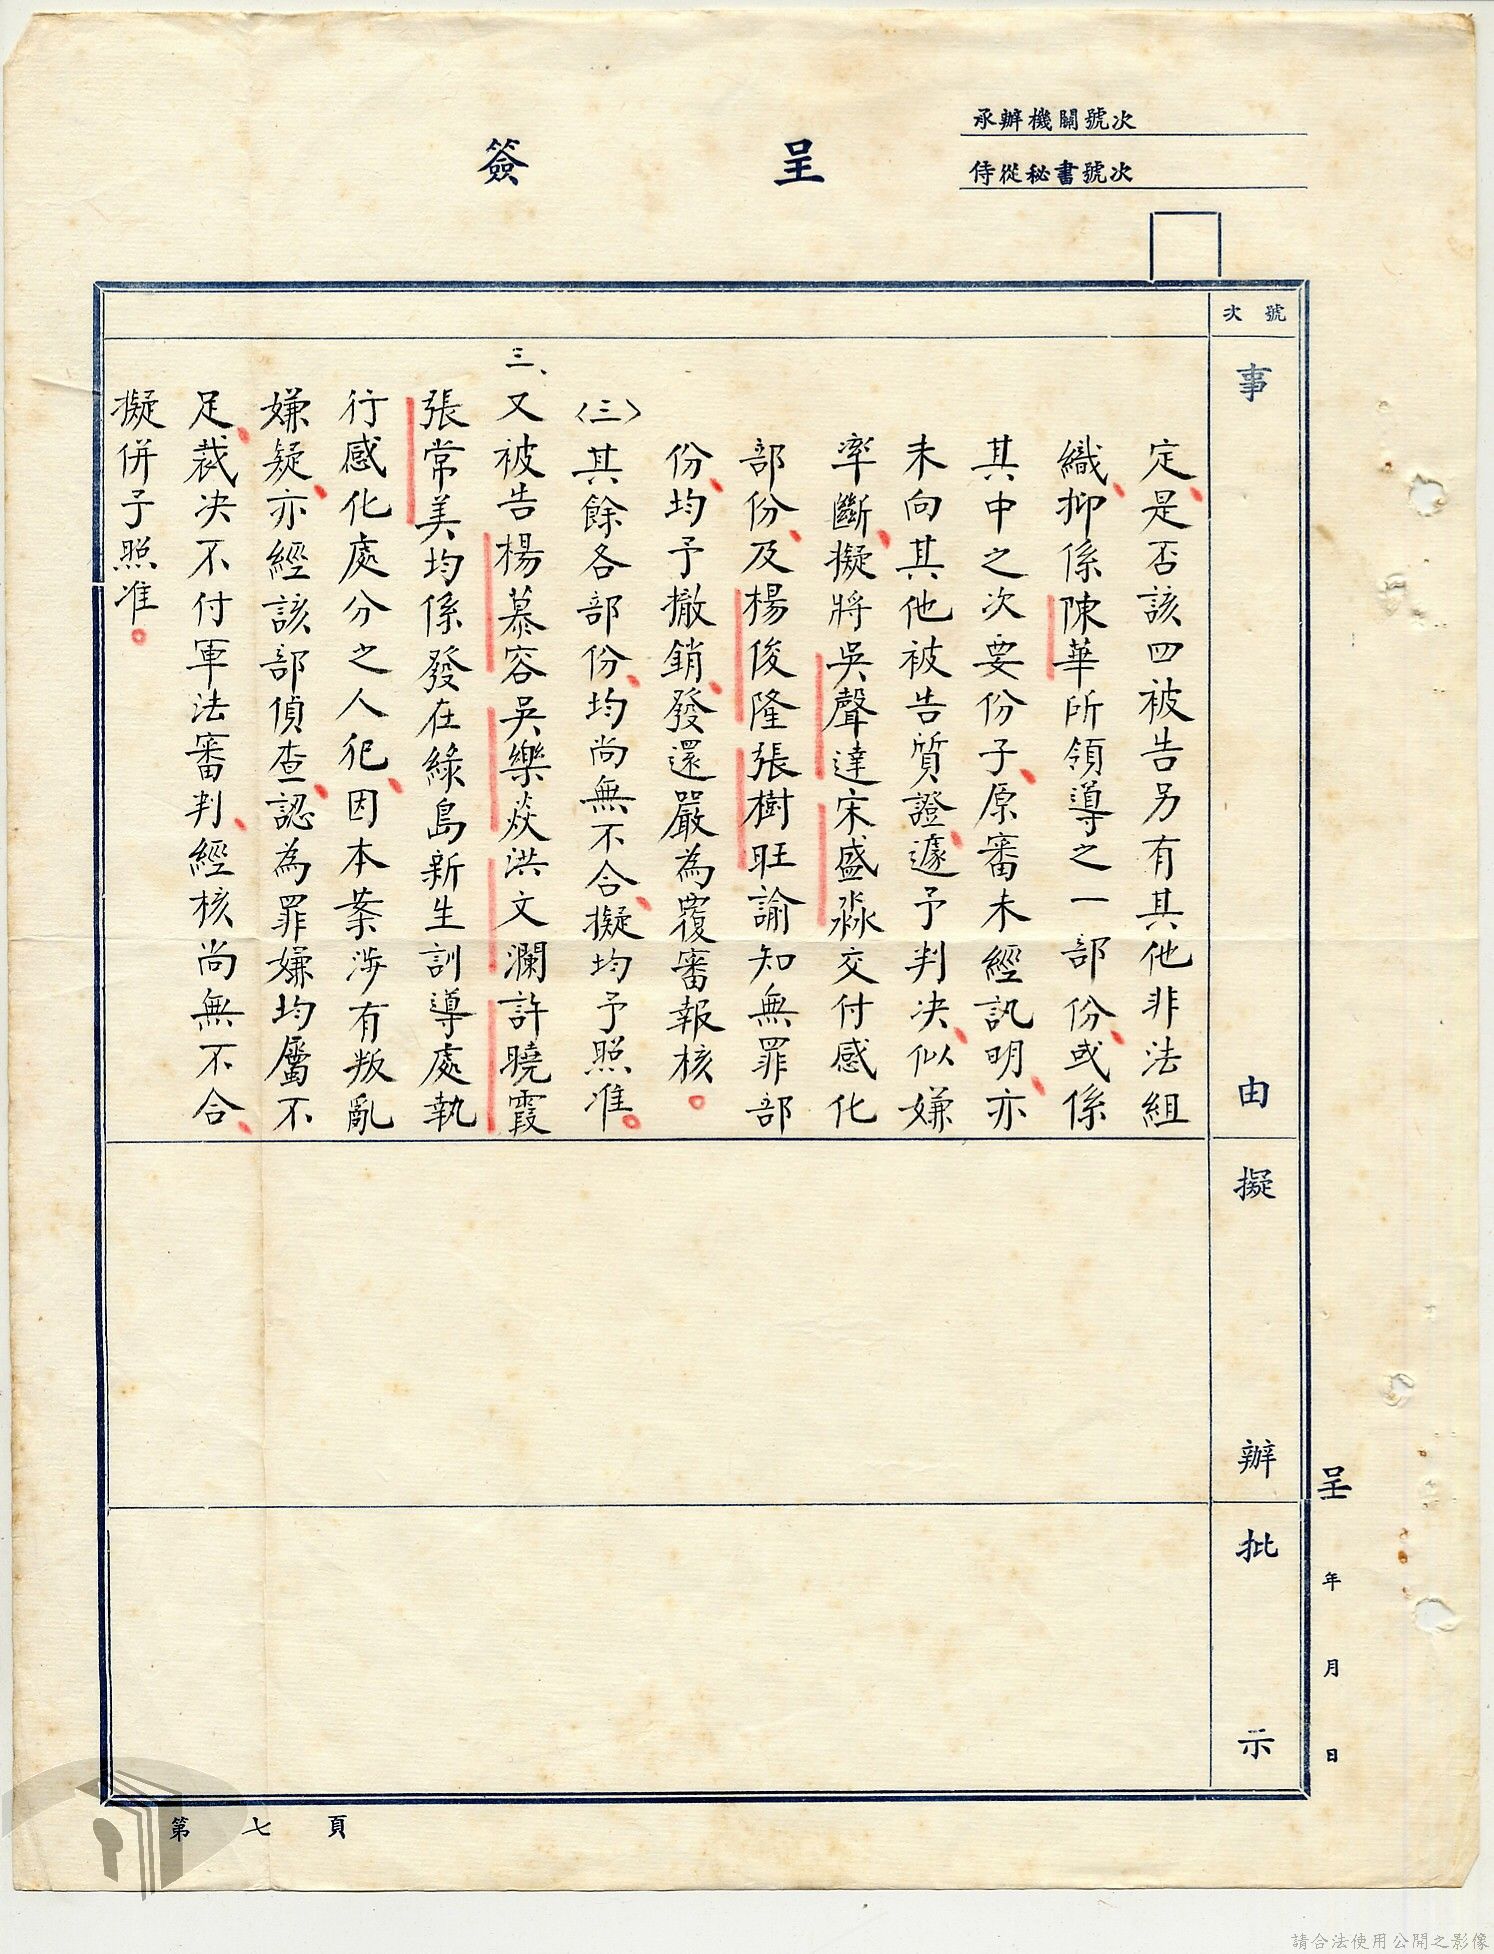 承辦機關號次
侍從秘書號次
簽呈
號次
事由
定、是否該四被告另有其他非法組
織、抑係陳華所領導之一部份、或係
其中之次要份子、原審未經訊明、亦
未向其他被告質證、遽予判決、似嫌
率斷、擬將吳聲達宋盛淼交付感化
部份、及楊俊隆張樹旺諭知無罪部
份、均予撤銷、發還嚴為覆審報核。
〈三〉其餘各部份、均尚無不合、擬均予照准。
三、又被告楊慕容吳樂焱洪文瀾許曉霞
張常美均係發在綠島新生訓導處執
行感化處分之人犯、因本案涉有叛亂
嫌疑、亦經該部偵查、認為罪嫌均屬不
足、裁决不付軍法審判、經核尚無不合、
擬併予照准。
擬辦
批示
呈 年 月 日
第七頁
請合法使用公開之影像